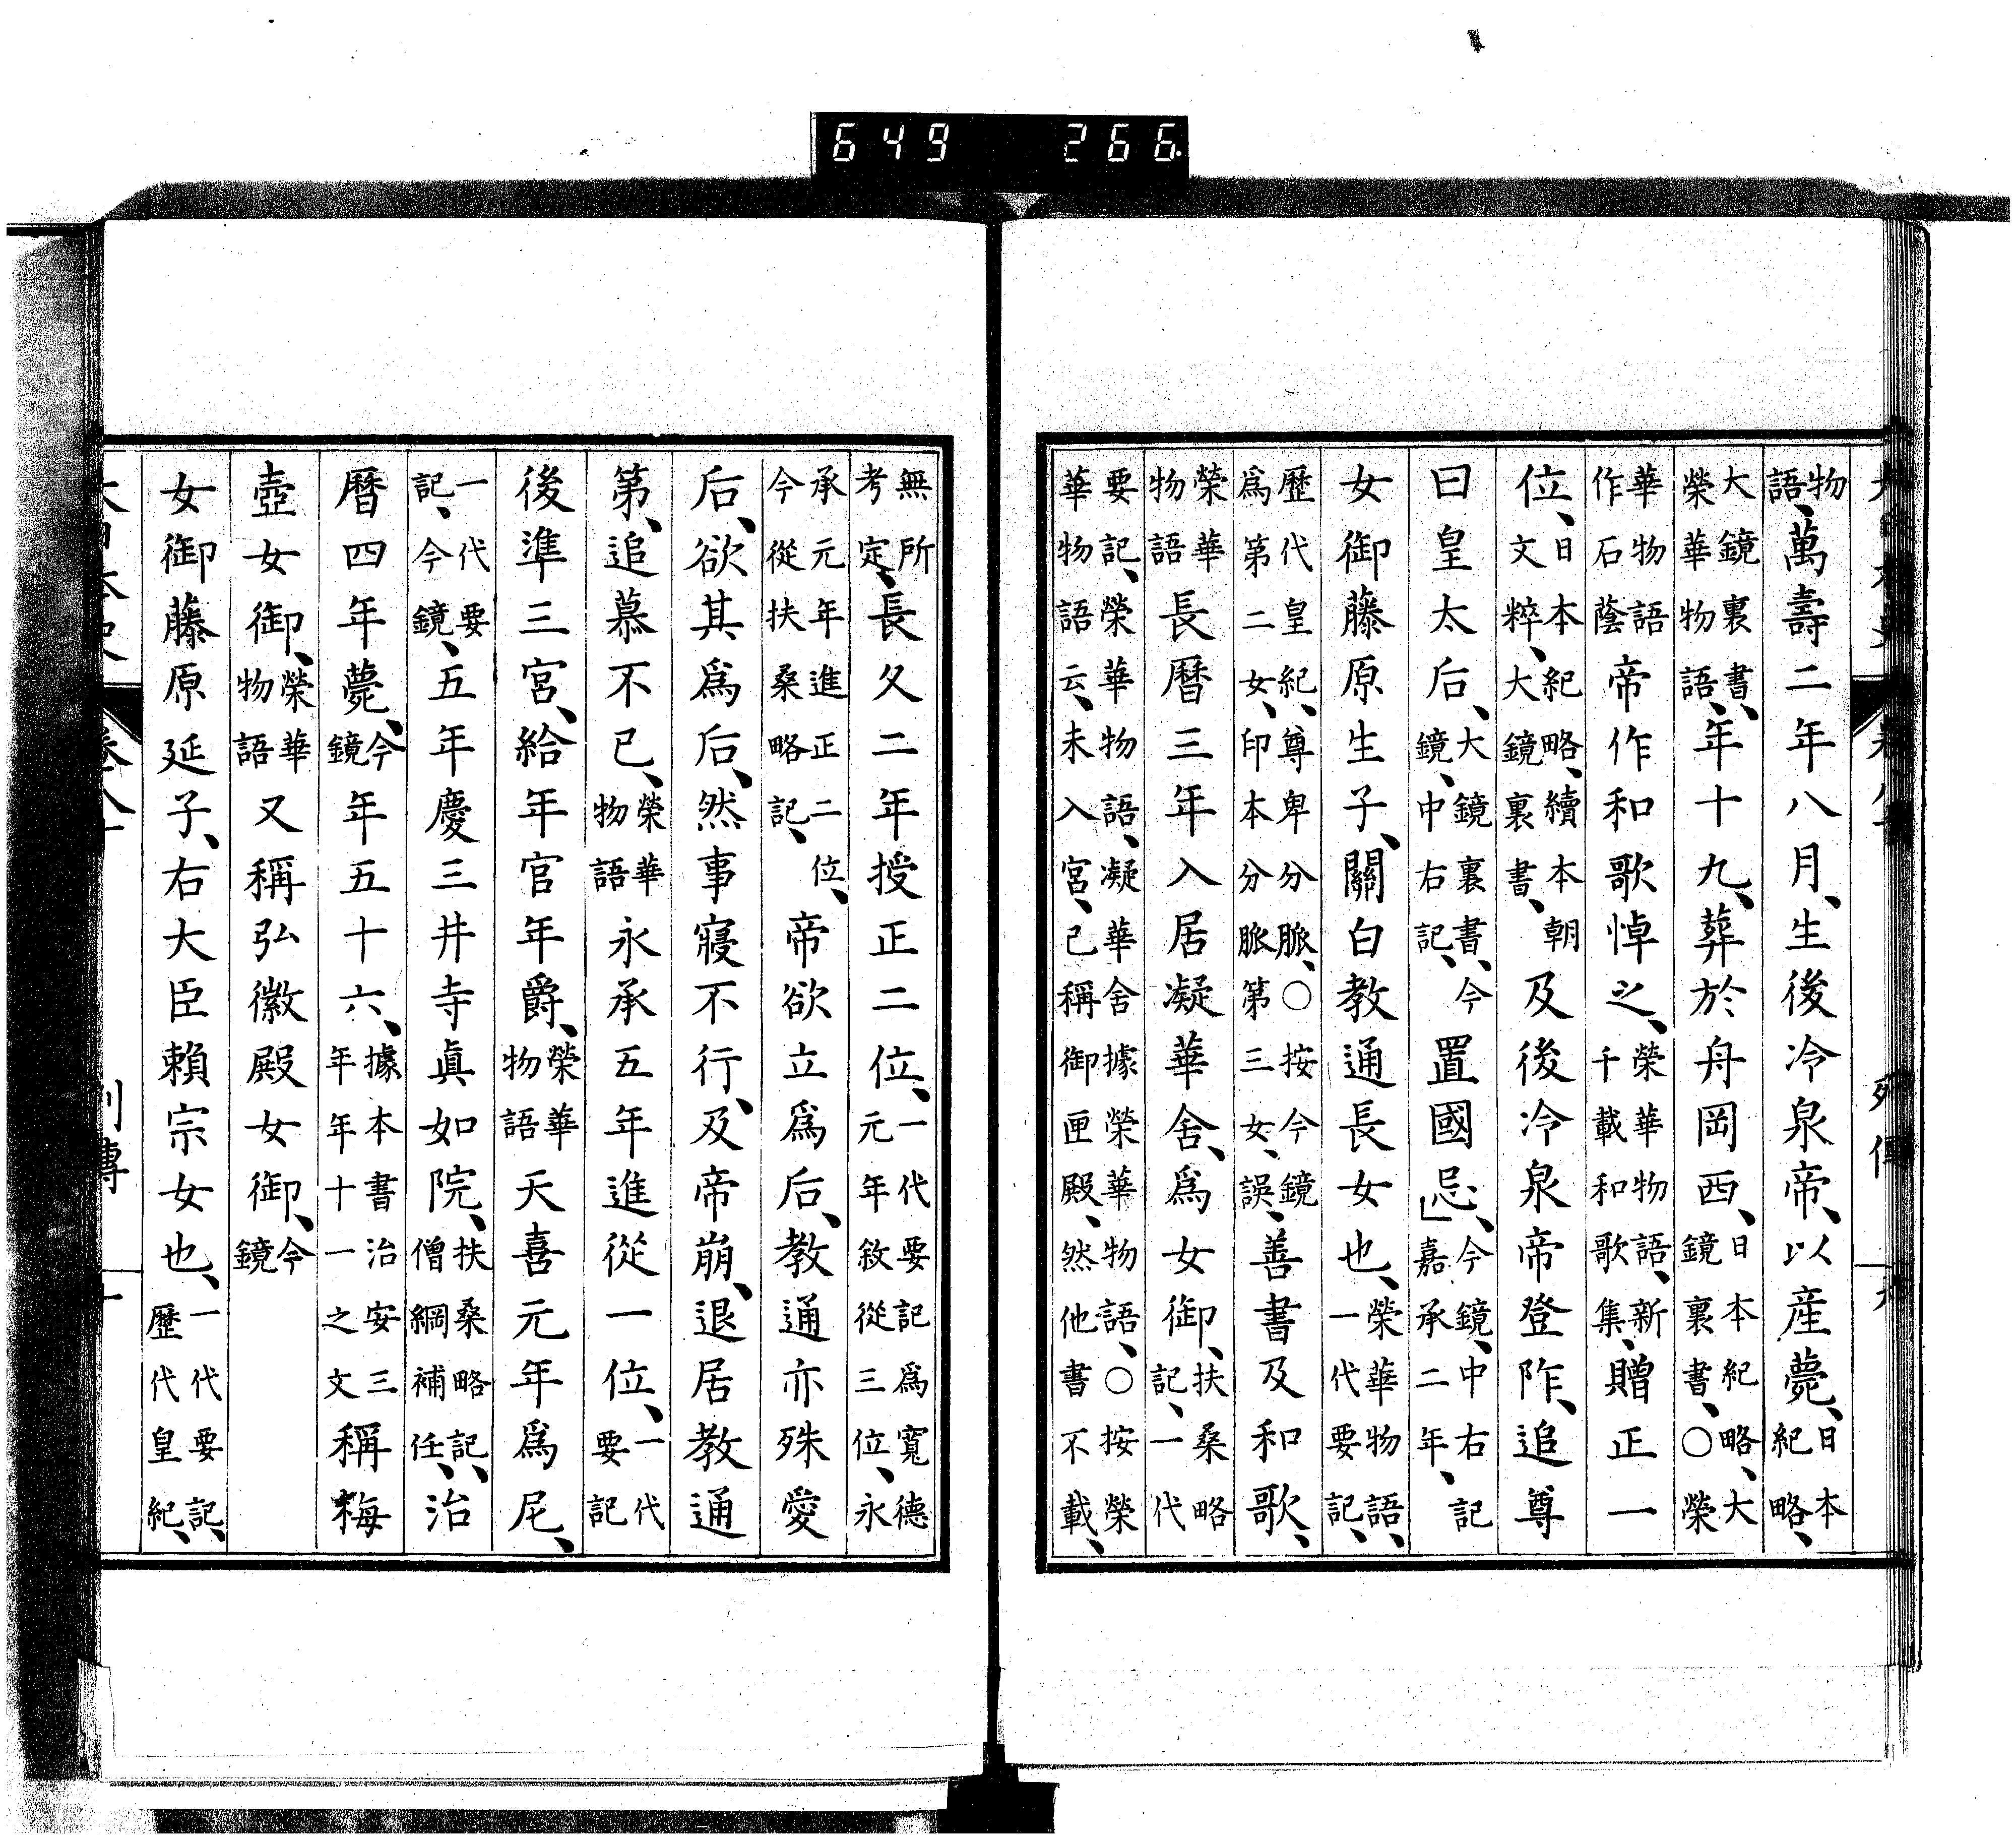 大日本史 列傳
物語、萬壽二年八月、生後冷泉帝、以産薨、日本紀略、
大鏡裏書、榮華物語、年十九、葬於舟岡西、日本紀略、大鏡裏書、〇榮
華物語作石蔭帝作和歌悼之、榮華物語、新千載和歌集、贈正一
位、日本紀略、續本朝文粹、大鏡裏書、及後冷泉帝登阼、追尊
曰皇太后、大鏡裏書、今鏡、中右記、置國忌、今鏡、中右記嘉承二年、
女御藤原生子、關白教通長女也、榮華物語、一代要記、
歷代皇紀、尊卑分脈、〇按今鏡爲第二女、印本分脈第三女、誤、善書及和歌、
榮華物語長曆三年入居凝華舍、爲女御、扶桑略記、一代
要記、榮華物語、凝華舍據榮華物語、〇按榮華物語云、未入宮、已稱御匣殿、然他書不載、
無所考定、長久二年授正二位、一代要記爲寬德元年敘從三位、永
承元年進正二位、今從扶桑略記、帝欲立爲后、教通亦殊愛
后、欲其爲后、然事寢不行、及帝崩、退居教通
第、追慕不已、榮華物語永承五年進從一位、一代要記
後準三宮、給年官年爵、榮華物語天喜元年爲尼、
一代要記、今鏡、五年慶三井寺眞如院、扶桑略記、僧綱補任、治
曆四年薨、今鏡年五十六、據本書治安三年年十一之文稱梅
壺女御、榮華物語又稱弘徽殿女御、今鏡
女御藤原延子、右大臣賴宗女也、一代要記、歷代皇紀、
649 266